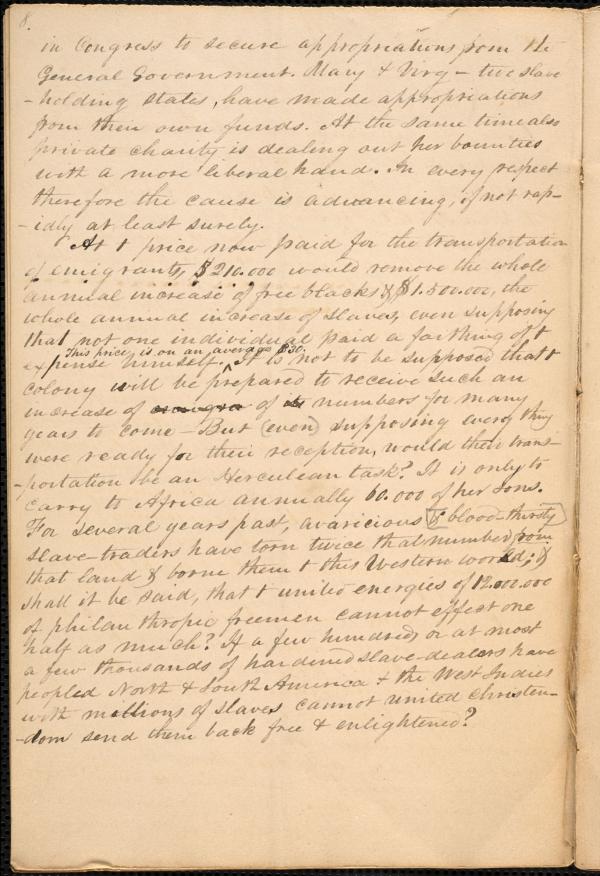 8.
in Congress to secure appropriations from the
General Government. Mary & Virg – two slave
-holding states, have made appropriations
from their own funds. At the same time also
private charity is dealing out her bounties
with a more liberal hand. In every respect
therefore the cause is advancing, if not rap-
-idly at least surely.
At t price now paid for the transportation
of emigrants, $210.000 would remove the whole
annual increase of free blacks & $1.500.000, the
whole annual increase of slaves, even supposing
that not one individual paid a farthing of t
This price, is on an average $30.
expense himself. ^ It is not to be supposed that t
colony will be prepared to receive such an
increase of of numbers for many
years to come – But (even) supposing every thing
were ready for their reception, would their trans-
-portation be an Herculean task? It is only to
carry to Africa annually 60.000 of her sons.
For several years past, avaricious & blood-thirsty
slave-traders have torn twice that number from
that land & borne them t this Western world; &
shall it be said, that t united energies of 12.000.000
of philanthropic freemen cannot effect one
half as much? If a few hundreds or at most
a few thousands of hardened slave-dealers have
peopled North & South America & the West Indies
with millions of slaves cannot united christen-
-dom send them back free & enlightened?